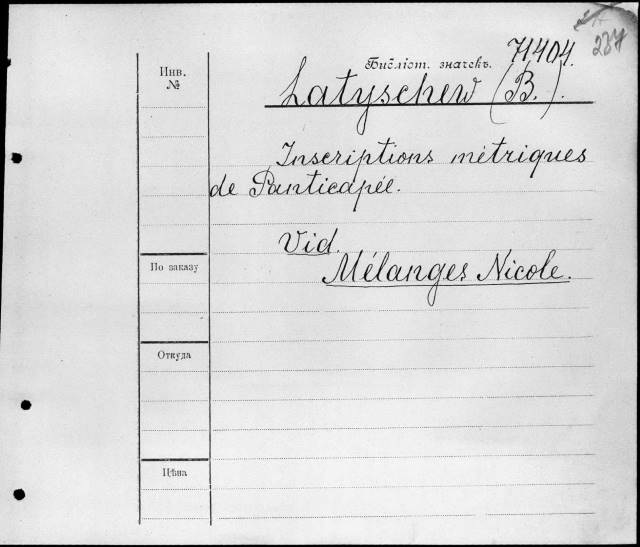 Инв.
№
Библіот. значекъ. 71404.
Latyschew (B.).
Inscriptions métriques
de Panticapée.
Vid.
Mélanges Nicole.
По заказу
Откуда
Цѣна